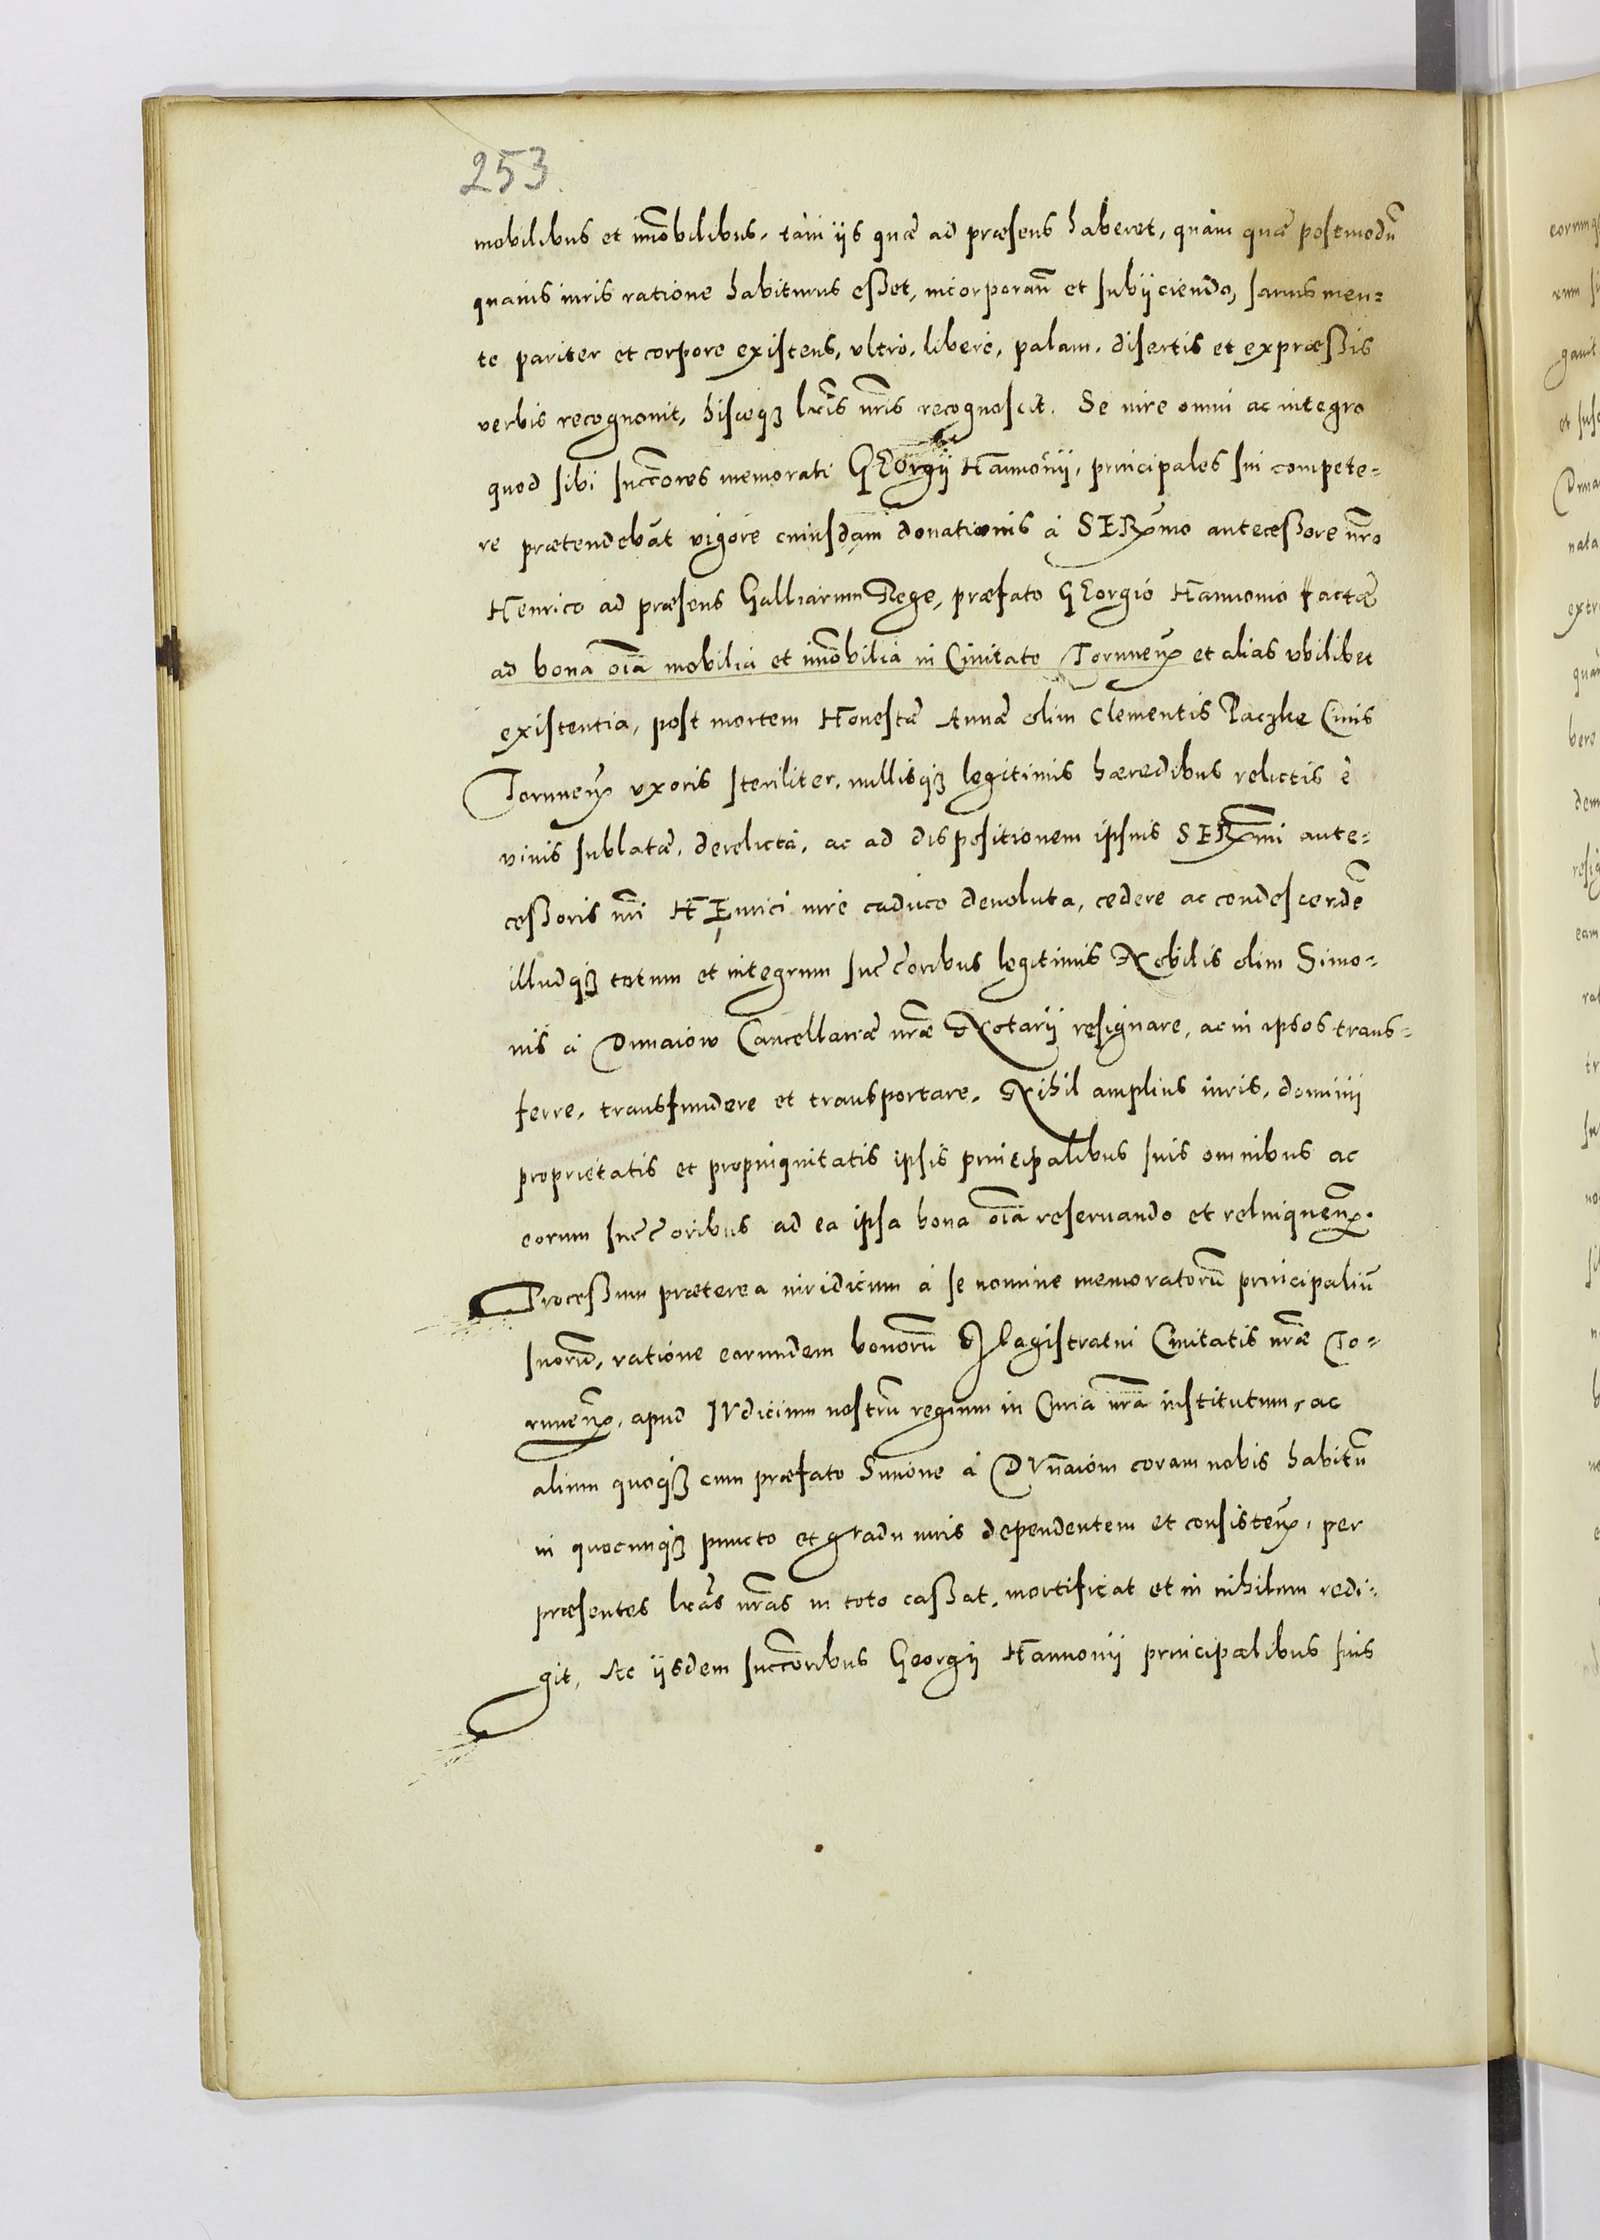 253
mobilibus et im̃obilibus, tàm ijs quæ ad præsens haberet, quàm quæ postmodũ
quauis iuris ratione habiturus eßet, incorporañ et subijciendo, sanus men-
te pariter et corpore existens, vltrò, liberè, palam, disertis et expræßis
verbis recognouit, hisceq₃ lr̃is nr̃is recognoscit. Se iure omni ac integro
quod sibi succ̃ores memorati GEorgij Hannonij, principales sui compete-
re prætendebãt vigore cuiusdam donationis à SERmo anteceßore nr̃o
Henrico ad præsens Galliarum Rege, præfato GEorgio Hannonio factæ
ad bona oĩa mobilia et im̃obilia in Ciuitate Toruneñ et alias vbilibet
existentia, post mortem Honestæ Annæ olim Clementis Paczke Ciuis
Toruneñ vxoris steriliter, nullisq₃ legitimis hæredibus relictis è
viuis sublatæ, derelicta, ac ad dispositionem ipsius SERmi ante-
ceßoris nr̃i HEnrici iure caduco deuoluta, cedere ac condescendẽ
illudq₃ totum et integrum succ̃oribus legitimis Nobilis olim Simo-
nis à Dunaiow Cancellariæ nr̃æ Notarij resignare, ac in ipsos trans-
ferre, transfundere et transportare, Nihil amplius iuris, dominij
proprietatis et propinquitatis ipsis principalibus suis omnibus ac
eorum succ̃oribus ad ea ipsa bona oĩa reseruando et relinqueñ.
Proceßum præterea iuridicum à se nomine memoratorũ principaliũ
suorũ, ratione eorundem bonorũ Magistratui Ciuitatis nr̃æ To-
runeñ, apud IVdicium nostrũ regium in Curia nr̃a institutum, ac
alium quoq₃ cum præfato Simone à DVnaiow coram nobis habitũ
in quocunq₃ puncto et gradu iuris dependentem et consisteñ, per
præsentes lr̃as nr̃as in toto caßat, mortificat et in nihilum redi-
git, Ac ijsdem succ̃oribus Georgij Hannonij principalibus suis